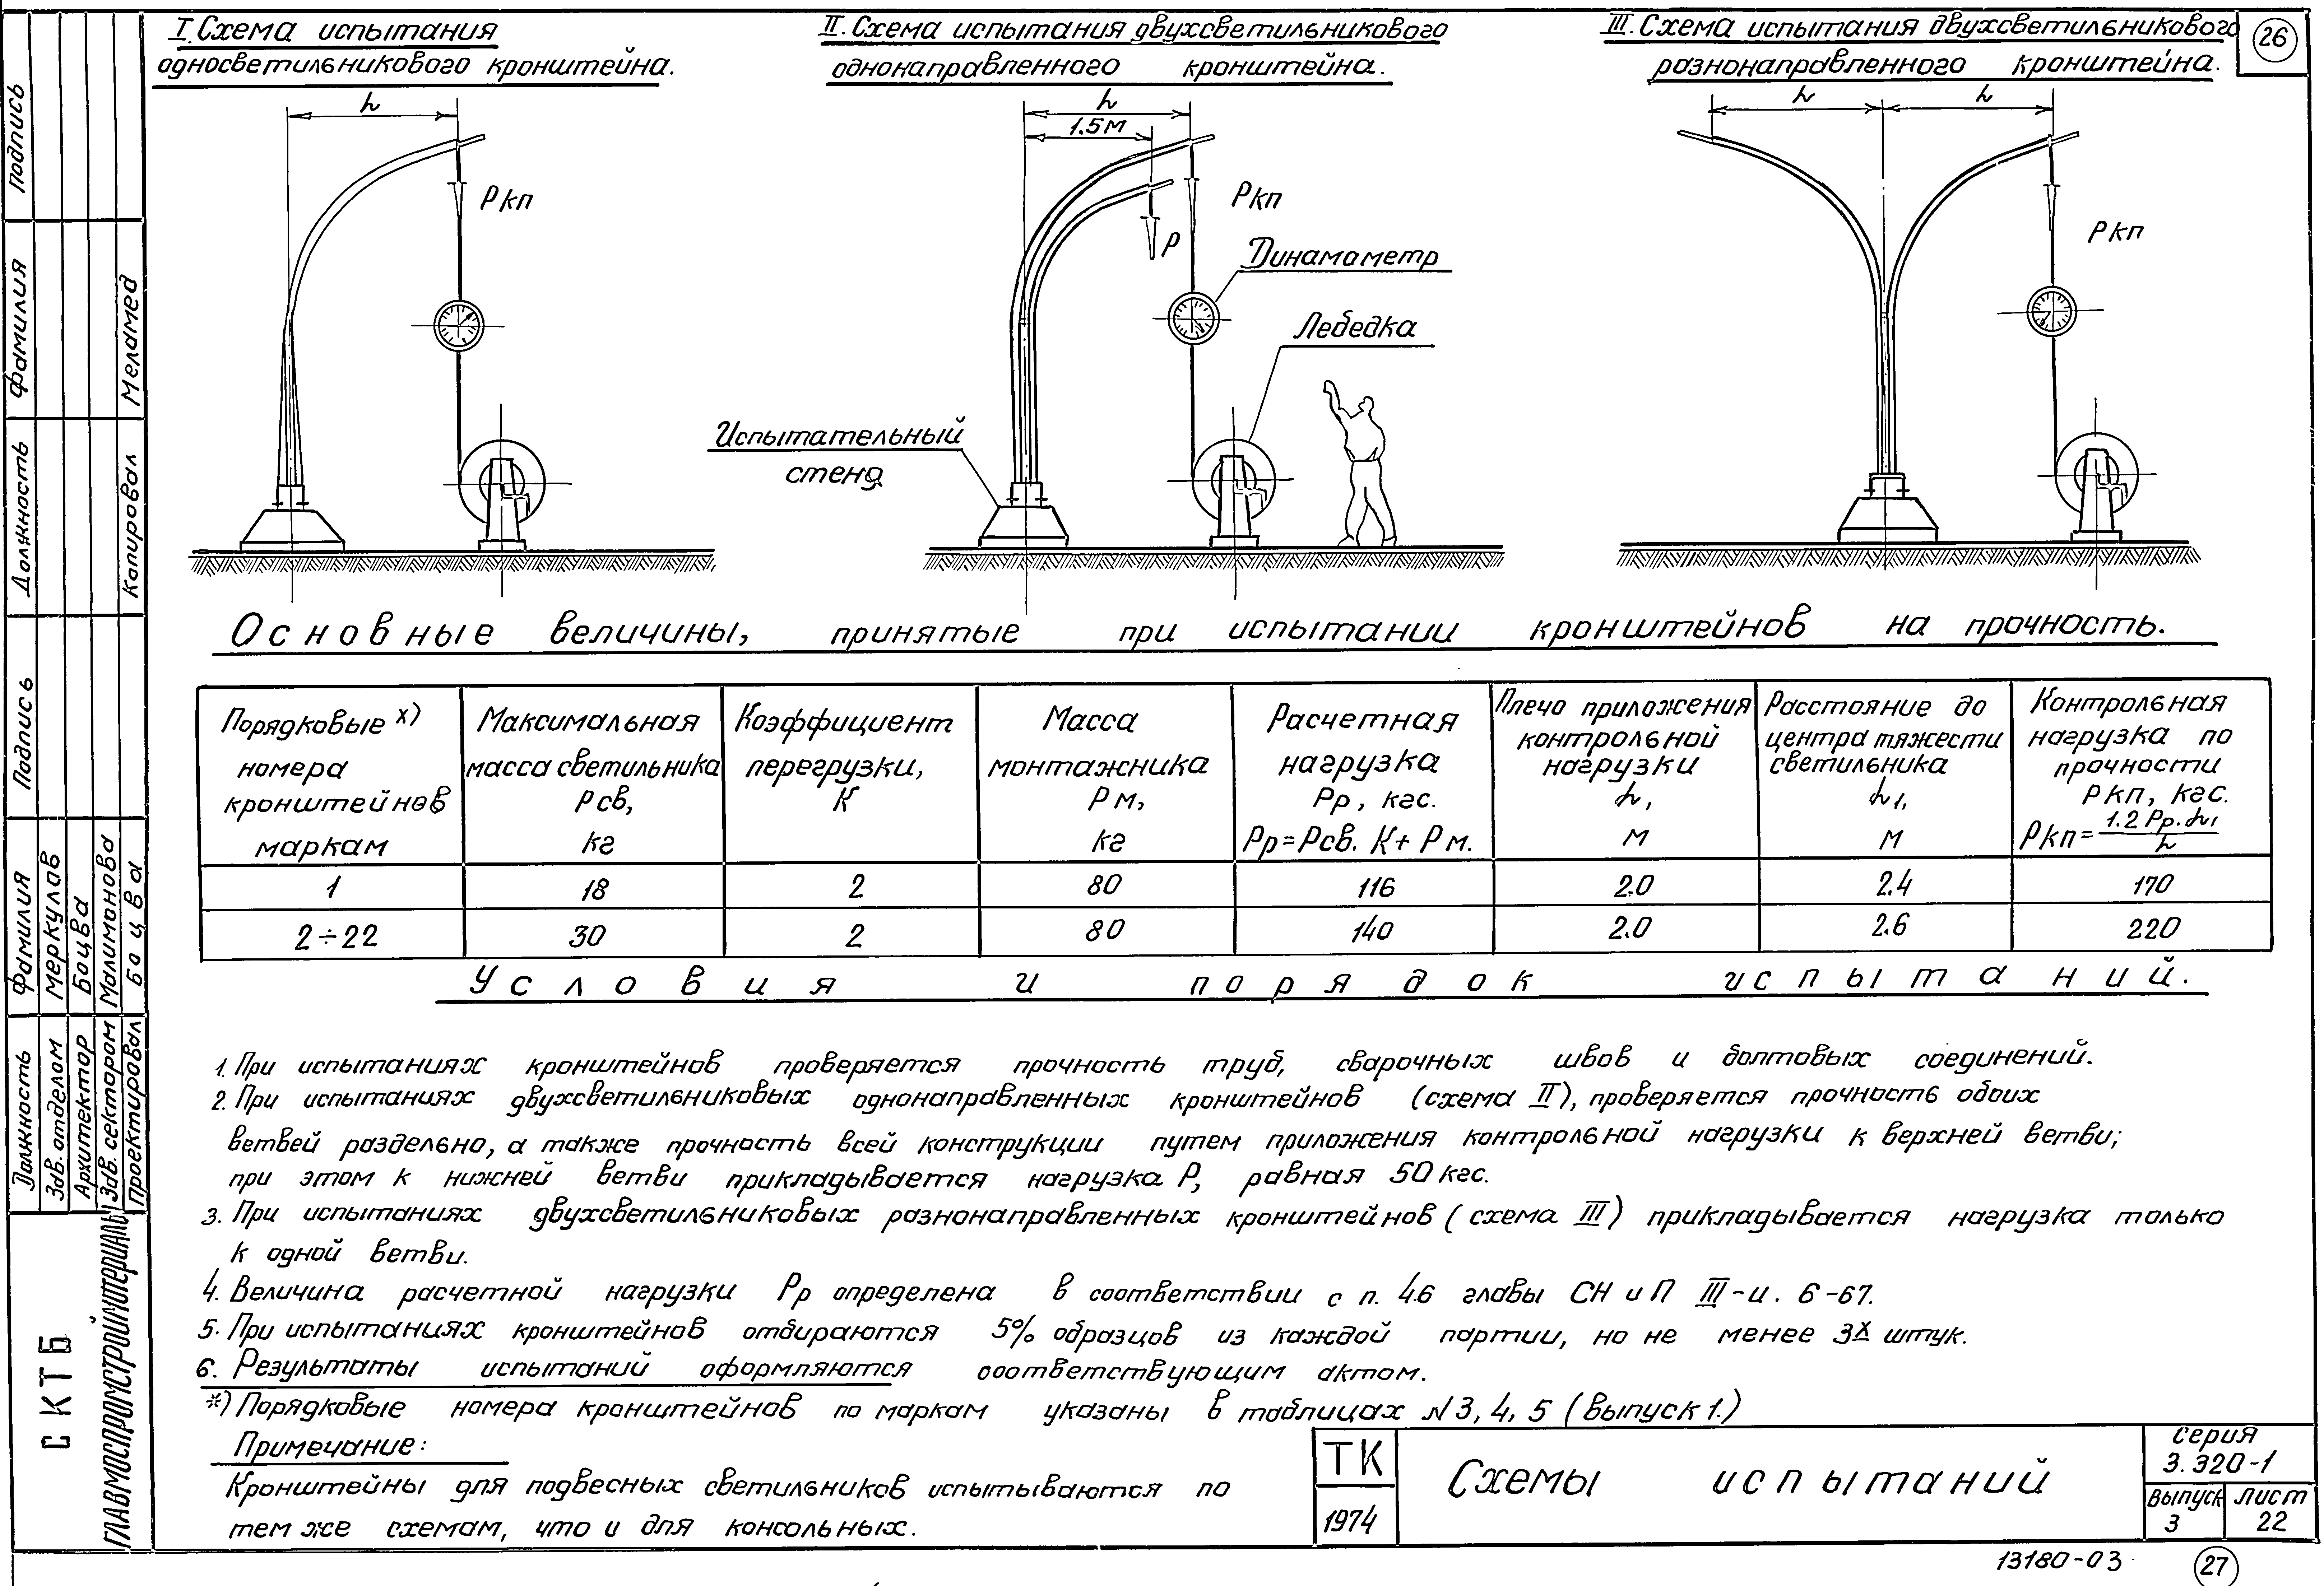 I. Схема испытания
односветильникового кронштейна.
II. Схема испытания двухсветильникового
однонаправленного кронштейна.
III. Схема испытания двухсветильникового
разнонаправленного кронштейна.
26
h
Ркп
h
1.5м
Ркп
Р
Динамометр
Лебедка
Испытательный
стенд
h
h
Ркп
Основные величины, принятые при испытании кронштейнов на прочность.
Порядковые х)
номера
кронштейнов
маркам
Максимальная
масса светильника
Рсв,
кг
Коэффициент
перегрузки,
К
Масса
монтажника
Рм,
кг
Расчетная
нагрузка
Рр, кгс.
Рр=Рсв. К+Рм.
Плечо приложения
контрольной
нагрузки
h,
м
Расстояние до
центра тяжести
светильника
h1,
м
Контрольная
нагрузка по
прочности
Ркп, кгс.
Ркп= 1.2 Рр. h1 / h
1 18 2 80 116 2.0 2.4 170
2÷22 30 2 80 140 2.0 2.6 220
Условия и порядок испытаний.
1. При испытаниях кронштейнов проверяется прочность труб, сварочных швов и болтовых соединений.
2. При испытаниях двухсветильниковых однонаправленных кронштейнов (схема II), проверяется прочность обоих
ветвей раздельно, а также прочность всей конструкции путем приложения контрольной нагрузки к верхней ветви;
при этом к нижней ветви прикладывается нагрузка Р, равная 50 кгс.
3. При испытаниях двухсветильниковых разнонаправленных кронштейнов (схема III) прикладывается нагрузка только
к одной ветви.
4. Величина расчетной нагрузки Рр определена в соответствии с п. 4.6 главы СН и П III-и. 6-67.
5. При испытаниях кронштейнов отбираются 5% образцов из каждой партии, но не менее 3х штук.
6. Результаты испытаний оформляются соответствующим актом.
*) Порядковые номера кронштейнов по маркам указаны в таблицах №3, 4, 5 (Выпуск 1.)
Примечание:
Кронштейны для подвесных светильников испытываются по
тем же схемам, что и для консольных.
ТК
1974
Схемы испытаний
серия
3.320-1
выпуск
3
лист
22
13180-03
27
Подпись
Фамилия
Меламед
Должность
Копировал
Подпись
Фамилия
Меркулов
Боцва
Малимонова
Боцва
Должность
Зав. отделом
Архитектор
Зав. сектором
Проектировал
СКТБ
ГЛАВМОСПРОМСТРОЙМАТЕРИАЛЫ